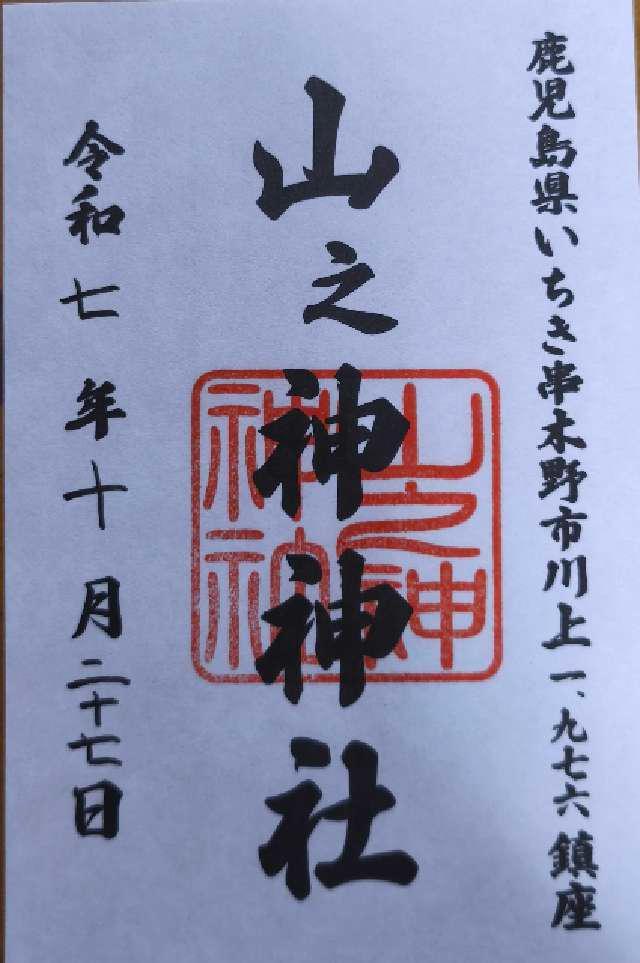 鹿児島県いちき串木野市川上一、九七六鎮座
山之神神社
山之神神社
令和七年十月二十七日